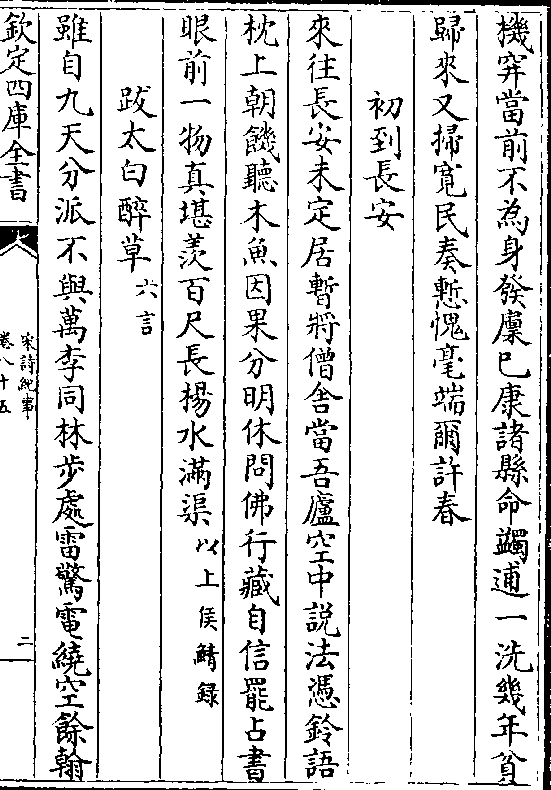 機穽當前不為身發廩已康諸縣命蠲逋一洗幾年貧
歸來又掃寬民奏慙愧毫端爾許春
初到長安
來往長安未定居暫將僧舍當吾廬空中説法憑鈴語
枕上朝饑聽木魚因果分明休問佛行藏自信罷占書
眼前一物真堪羨百尺長楊水滿渠以上侯鯖録
跋太白醉草六言
雖自九天分派不與萬李同林步處雷驚電繞空餘翰
欽定四庫全書
宋詩紀事
卷八十五
二